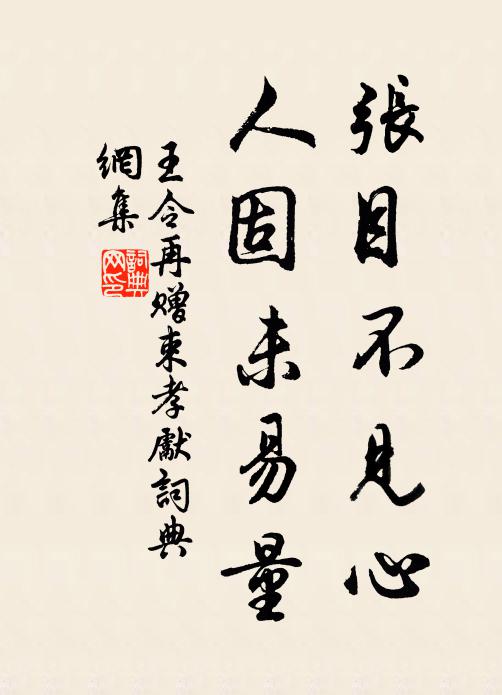 張目不見心
人固未易量
王令再贈束孝獻詞典
網集
詞典
网印